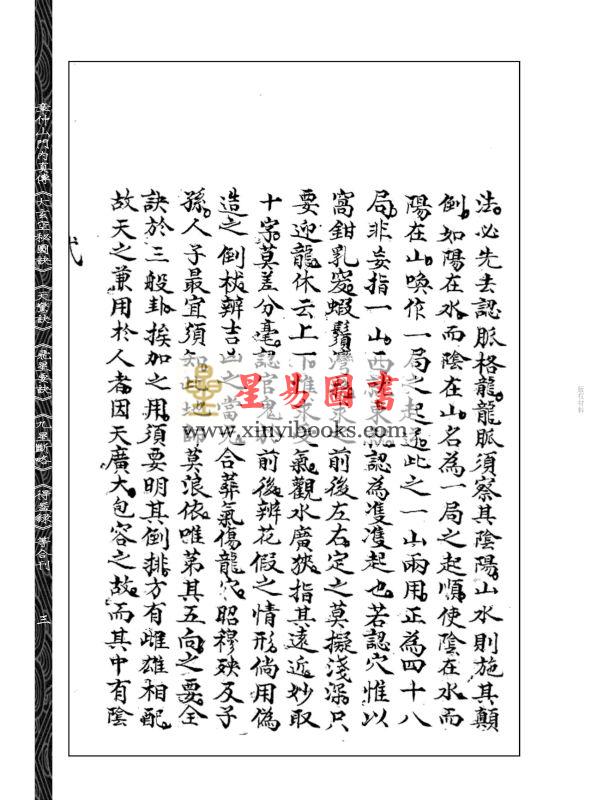 法。必先去認脈格龍。龍脈須察其陰陽。山水則施其顛
倒。如陽在水而陰在山。名為一局之起順。使陰在水而
陽在山。喚作一局之起逆。此之一山兩用。正為四十八
局。非妄指一山。西東認為隻隻起也。若認穴惟以
窩鉗乳突。蝦鬚灣前後左右。定之莫擬淺深。只
要迎龍。休云上下。惟求氣。觀水廣狹。指其遠近。妙取
十字。莫差分毫。認官鬼於前後。辨花假之情形。倘用偽
造之倒杖。辨吉凶之當合葬。氣傷龍穴。昭穆殃及子
孫。人子最宜須知此。地師莫浪依。唯第其五向之要。全
訣於三般卦。挨加之用。須要明其倒排。方有雌雄相配。
故天之兼用於人者。因天廣大包容之故。而其中有陰
弍
星易圖書
www.xinyibooks.com
章仲山門內真傳《大玄空秘圖訣》《天驚訣》《飛星要訣》《九星斷略》《得益錄》等合刊
三
版权材料